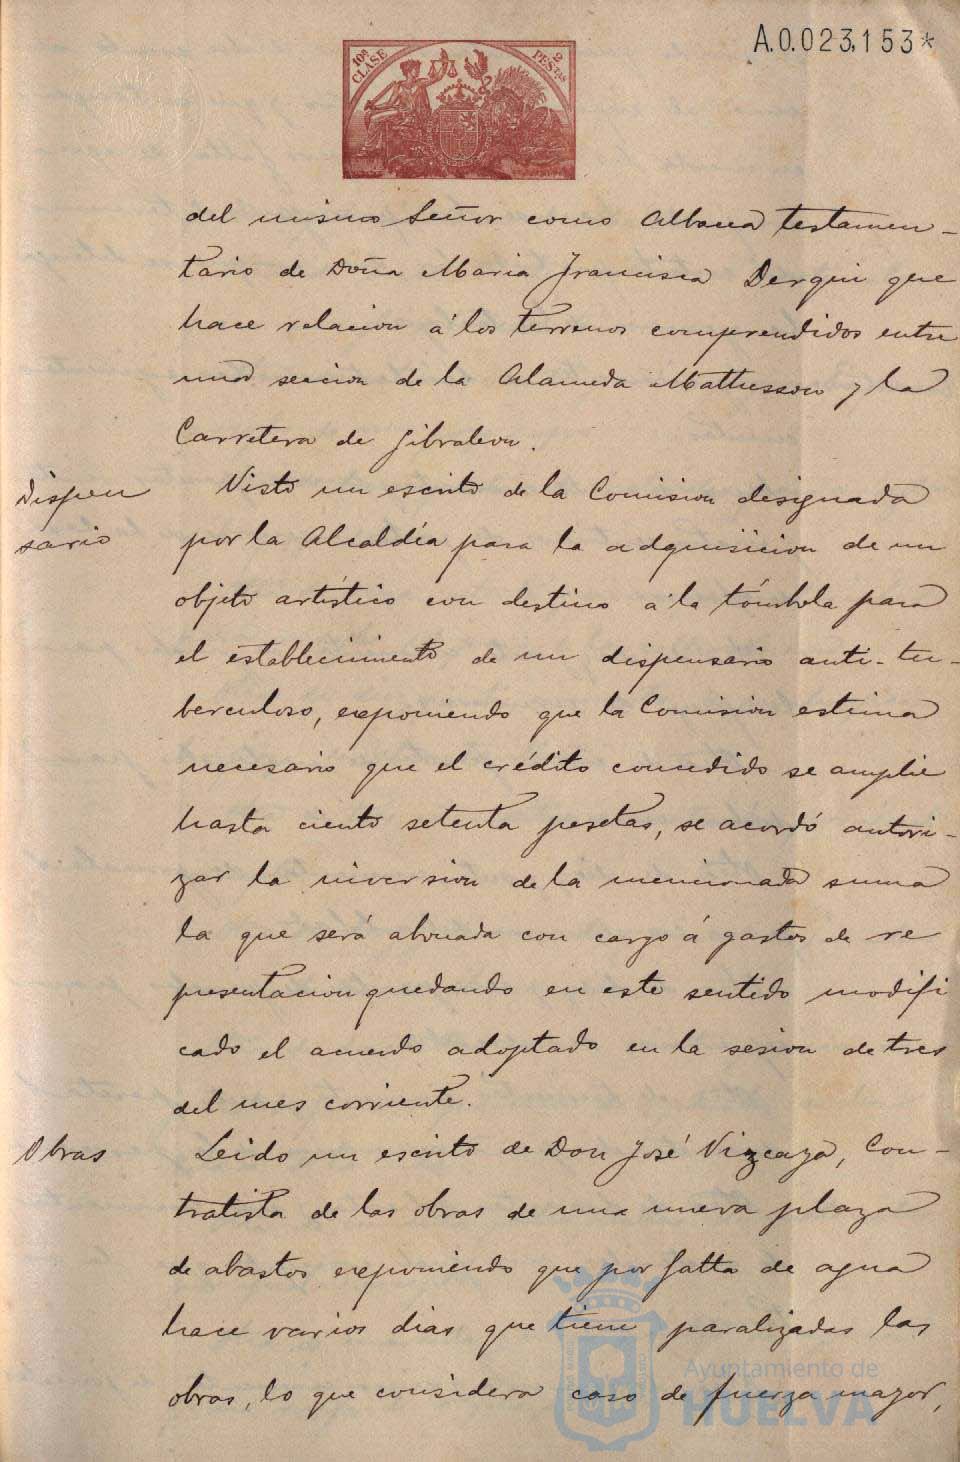 A.0.023,153*
10ª CLASE
2 PESETAS
del mismo Señor como Albacea testamen-
tario de Doña Maria Francisca Derqui que
hace relacion á los terrenos comprendidos entre
una seccion de la Alameda Mathesson y la
Carretera de Gibraleon.
Dispen
sario
Visto un escrito de la Comision designada
por la Alcaldía para la adquisicion de un
objeto artístico con destino á la tómbola para
el establecimiento de un dispensario anti-tu-
berculoso, exponiendo que la Comision estima
necesario que el crédito concedido se amplie
hasta ciento setenta pesetas, se acordó autori-
zar la inversion de la mencionada suma
la que será abonada con cargo á gastos de re
presentacion quedando en este sentido modifi
cado el acuerdo adoptado en la sesion de tres
del mes corriente.
Obras
Leido un escrito de Don José Vizcaya, Con-
tratista de las obras de una nueva plaza
de abastos exponiendo que por falta de agua
hace varios dias que tiene paralizadas las
obras, lo que considera caso de fuerza mayor,
Ayuntamiento de
HUELVA